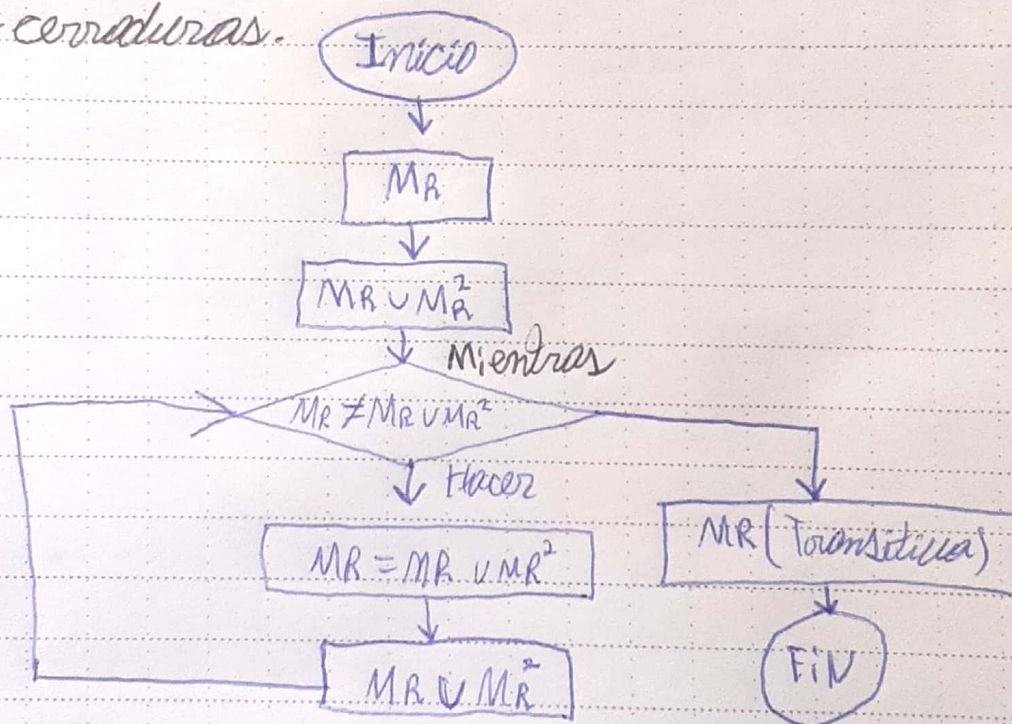 cerraduras.
Inicio
MR
MR ∪ MR²
Mientras
MR ≠ MR ∪ MR²
Hacer
MR = MR ∪ MR²
MR ∪ MR²
MR (Transitiva)
FiN